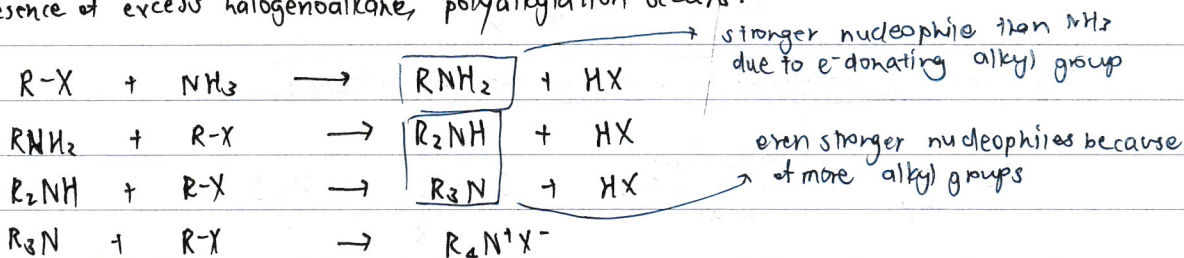 presence of excess halogenoalkane, polyalkylation occurs.
R-X + NH₃ → RNH₂ + HX
stronger nucleophile than NH₃
due to e-donating alkyl group
RNH₂ + R-X → R₂NH + HX
R₂NH + R-X → R₃N + HX
even stronger nucleophiles because
of more alkyl groups
R₃N + R-X → R₄N⁺X⁻